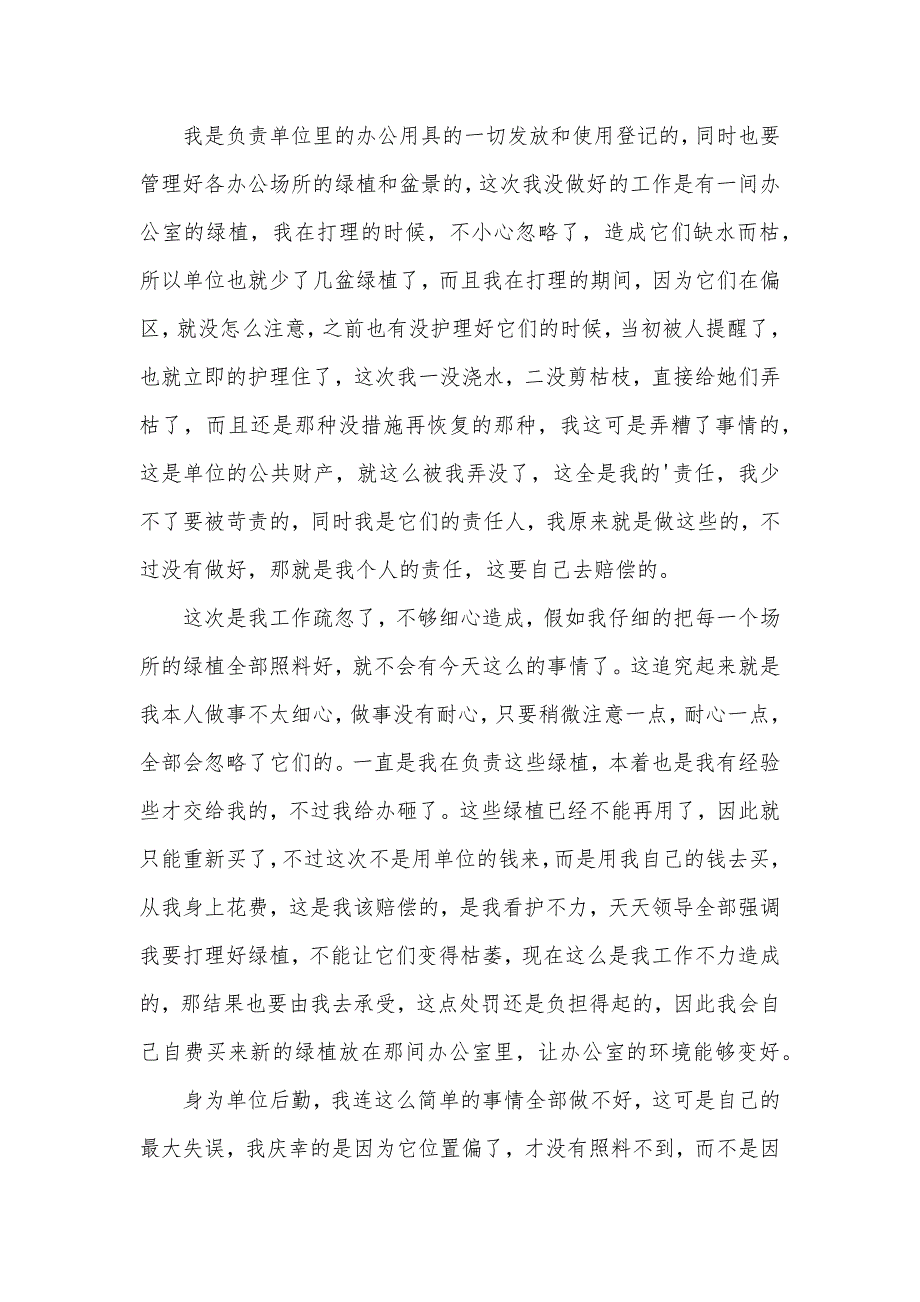 我是负责单位里的办公用具的一切发放和使用登记的，同时也要
管理好各办公场所的绿植和盆景的，这次我没做好的工作是有一间办
公室的绿植，我在打理的时候，不小心忽略了，造成它们缺水而枯，
所以单位也就少了几盆绿植了，而且我在打理的期间，因为它们在偏
区，就没怎么注意，之前也有没护理好它们的时候，当初被人提醒了，
也就立即的护理住了，这次我一没浇水，二没剪枯枝，直接给她们弄
枯了，而且还是那种没措施再恢复的那种，我这可是弄糟了事情的，
这是单位的公共财产，就这么被我弄没了，这全是我的'责任，我少
不了要被苛责的，同时我是它们的责任人，我原来就是做这些的，不
过没有做好，那就是我个人的责任，这要自己去赔偿的。
这次是我工作疏忽了，不够细心造成，假如我仔细的把每一个场
所的绿植全部照料好，就不会有今天这么的事情了。这追究起来就是
我本人做事不太细心，做事没有耐心，只要稍微注意一点，耐心一点，
全部会忽略了它们的。一直是我在负责这些绿植，本着也是我有经验
些才交给我的，不过我给办砸了。这些绿植已经不能再用了，因此就
只能重新买了，不过这次不是用单位的钱来，而是用我自己的钱去买，
从我身上花费，这是我该赔偿的，是我看护不力，天天领导全部强调
我要打理好绿植，不能让它们变得枯萎，现在这么是我工作不力造成
的，那结果也要由我去承受，这点处罚还是负担得起的，因此我会自
己自费买来新的绿植放在那间办公室里，让办公室的环境能够变好。
身为单位后勤，我连这么简单的事情全部做不好，这可是自己的
最大失误，我庆幸的是因为它位置偏了，才没有照料不到，而不是因